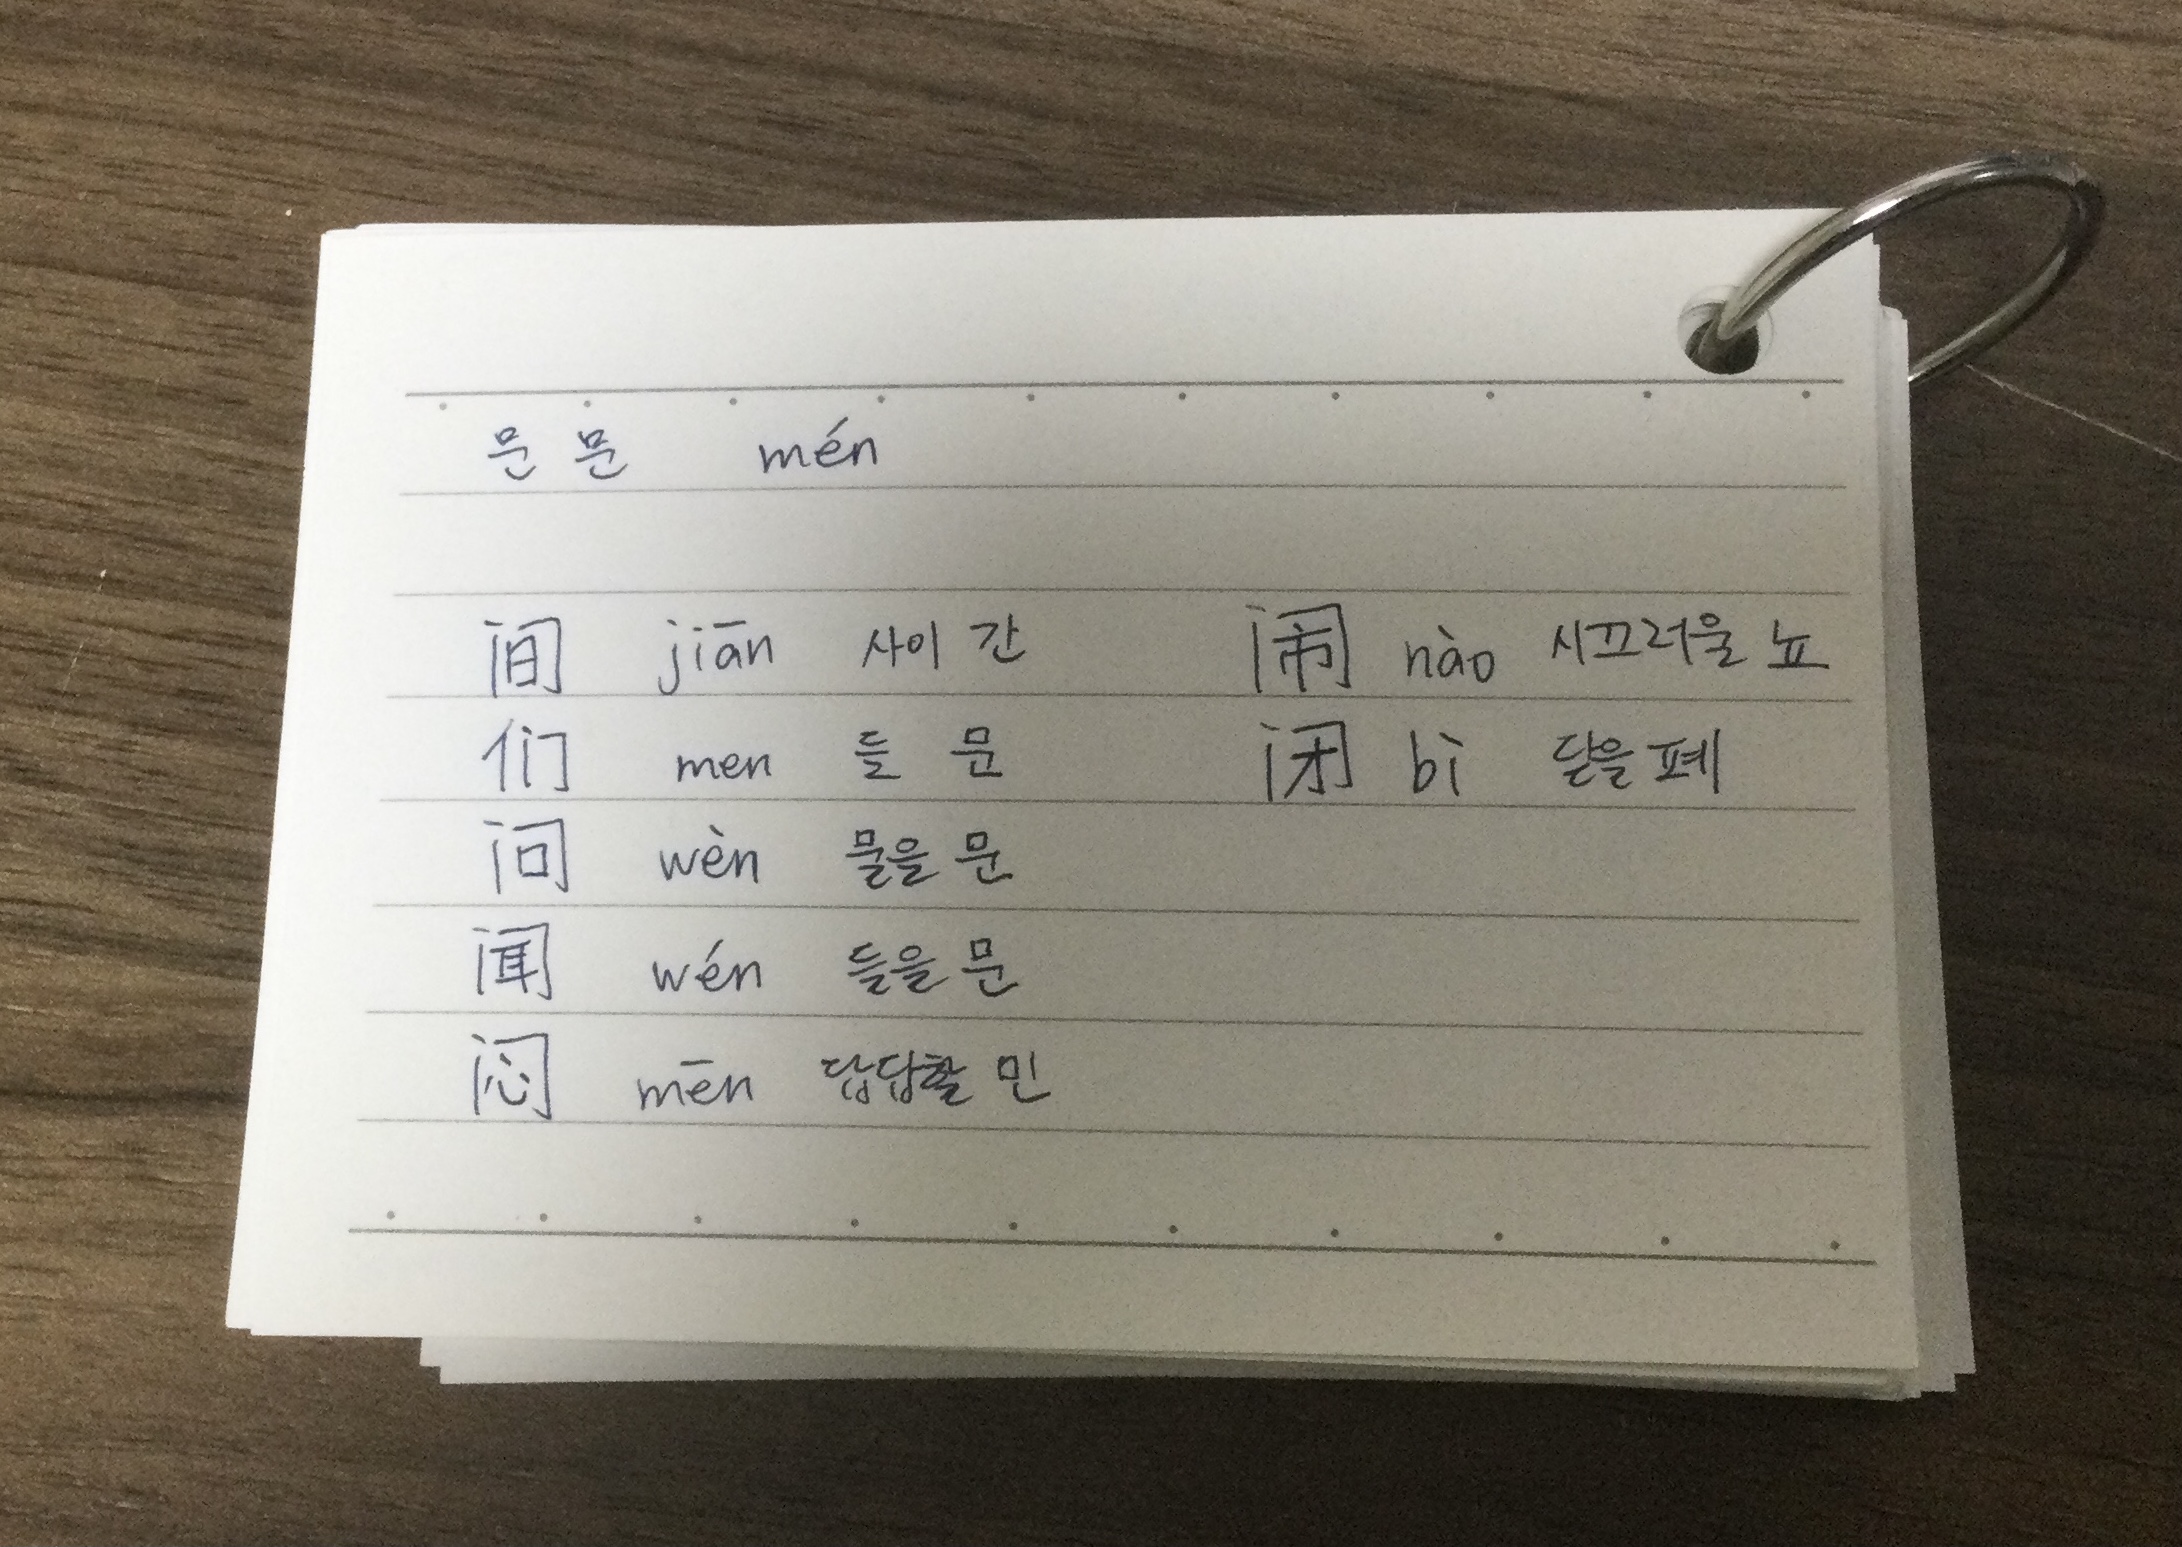 문 문 mén
间 jiān 사이 간
们 men 들 문
问 wèn 물을 문
闻 wén 들을 문
闷 mēn 답답할 민
闹 nào 시끄러울 뇨
闭 bì 닫을 폐